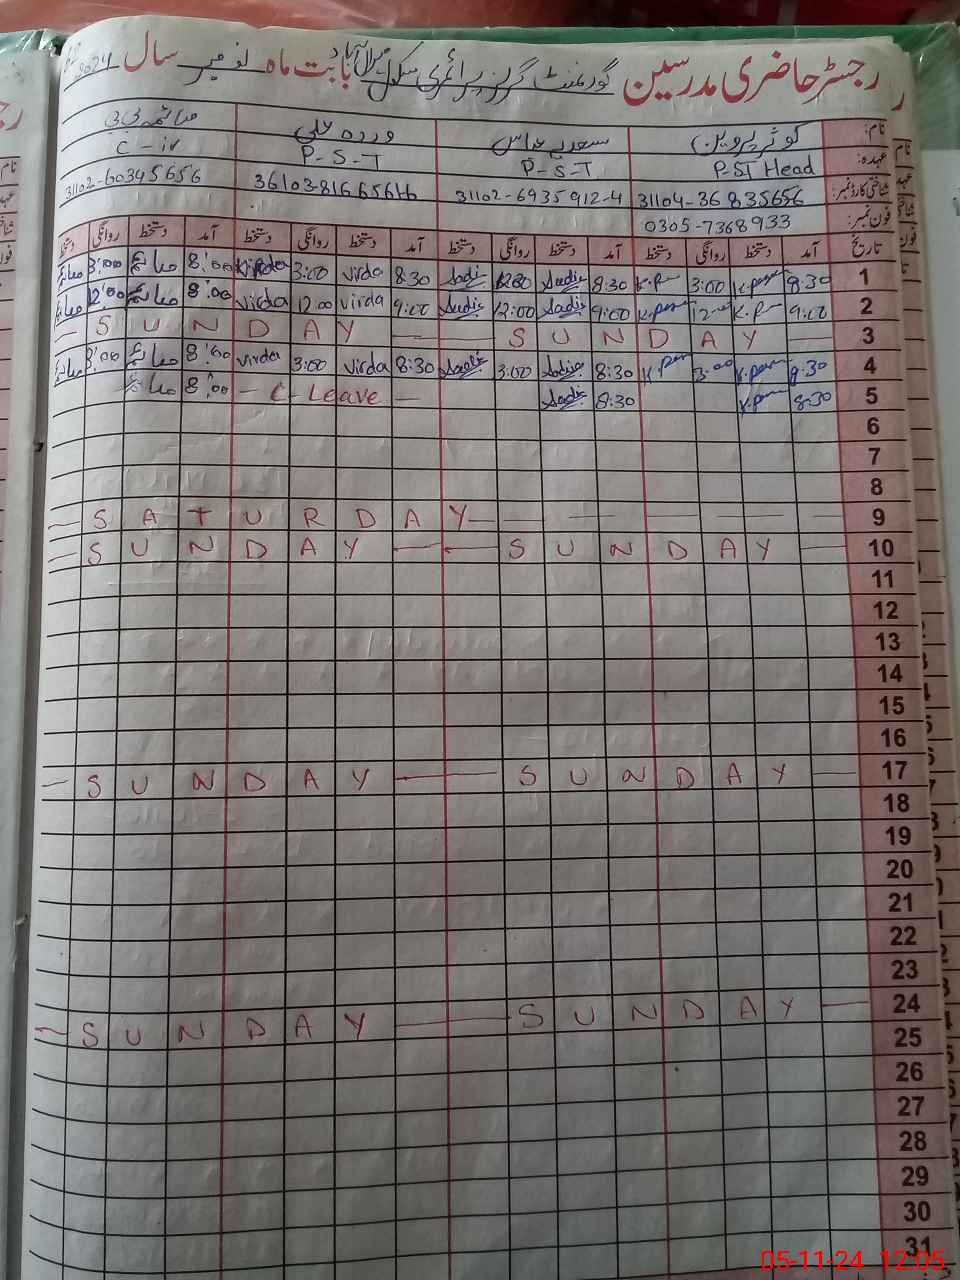 رجسٹر حاضری مدرسین گورنمنٹ گرلز پرائمری سکول بابت ماہ نومبر سال 2024
نام: کوثر پروین سعدیہ عباس وردہ علی صائمہ بی بی
عہدہ: P-ST Head P-S-T P-S-T C-iv
شناختی کارڈ نمبر: 31104-36835656 31102-6935912-4 36103-8166561-6 31102-60345656
فون نمبر: 0305-7368933
تاریخ آمد دستخط روانگی دستخط آمد دستخط روانگی دستخط آمد دستخط روانگی دستخط آمد دستخط روانگی دستخط
1 8:30 K.per 3:00 K.P 8:30 Sadia 12:30 Sadia 8:30 Virda 3:00 Virda 8:00 صائمہ 3:00 صائمہ
2 9:00 K.P 12 K.per 9:00 Sadia 12:00 Sadia 9:00 Virda 12:00 Virda 8:00 صائمہ 12:00 صائمہ
3 SUNDAY SUNDAY
4 8:30 K.per 3:00 K.per 8:30 Sadia 3:00 Sadia 8:30 Virda 3:00 Virda 8:00 صائمہ 3:00 صائمہ
5 8:30 K.per 8:30 Sadia – C-Leave – 8:00 صائمہ
6
7
8
9 SATURDAY
10 SUNDAY SUNDAY
11
12
13
14
15
16
17 SUNDAY SUNDAY
18
19
20
21
22
23
24 SUNDAY SUNDAY
25
26
27
28
29
30
31
05-11-24 12:05